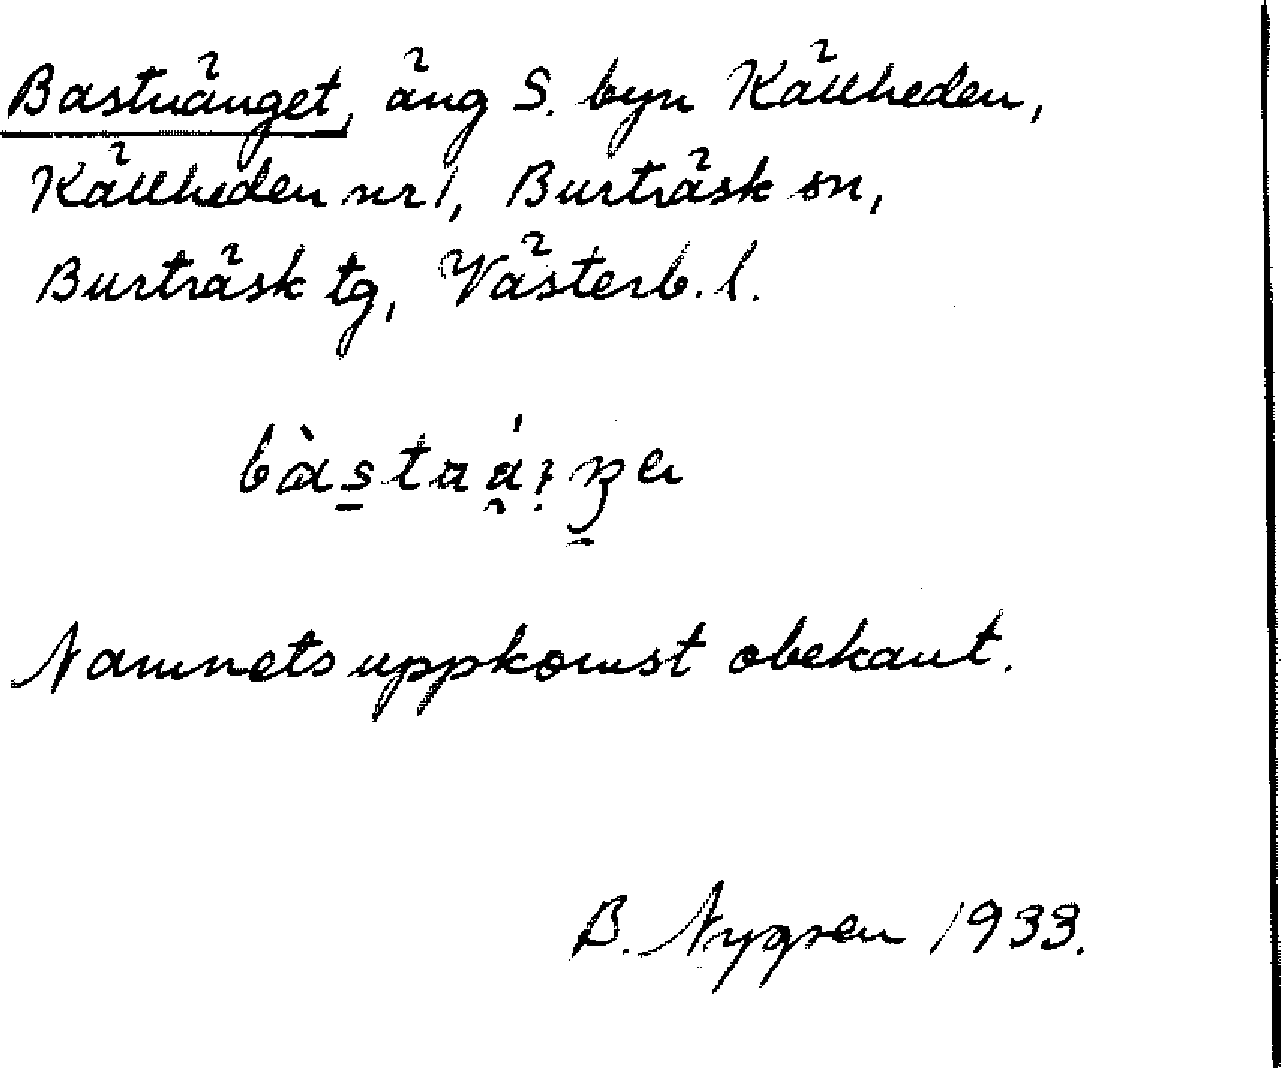 Bastuänget, äng S. byn Källheden,
Källheden nr 1, Burträsk sn,
Burträsk tg, Västerb. l.
Namnets uppkomst obekant.
B. Nygren 1933.